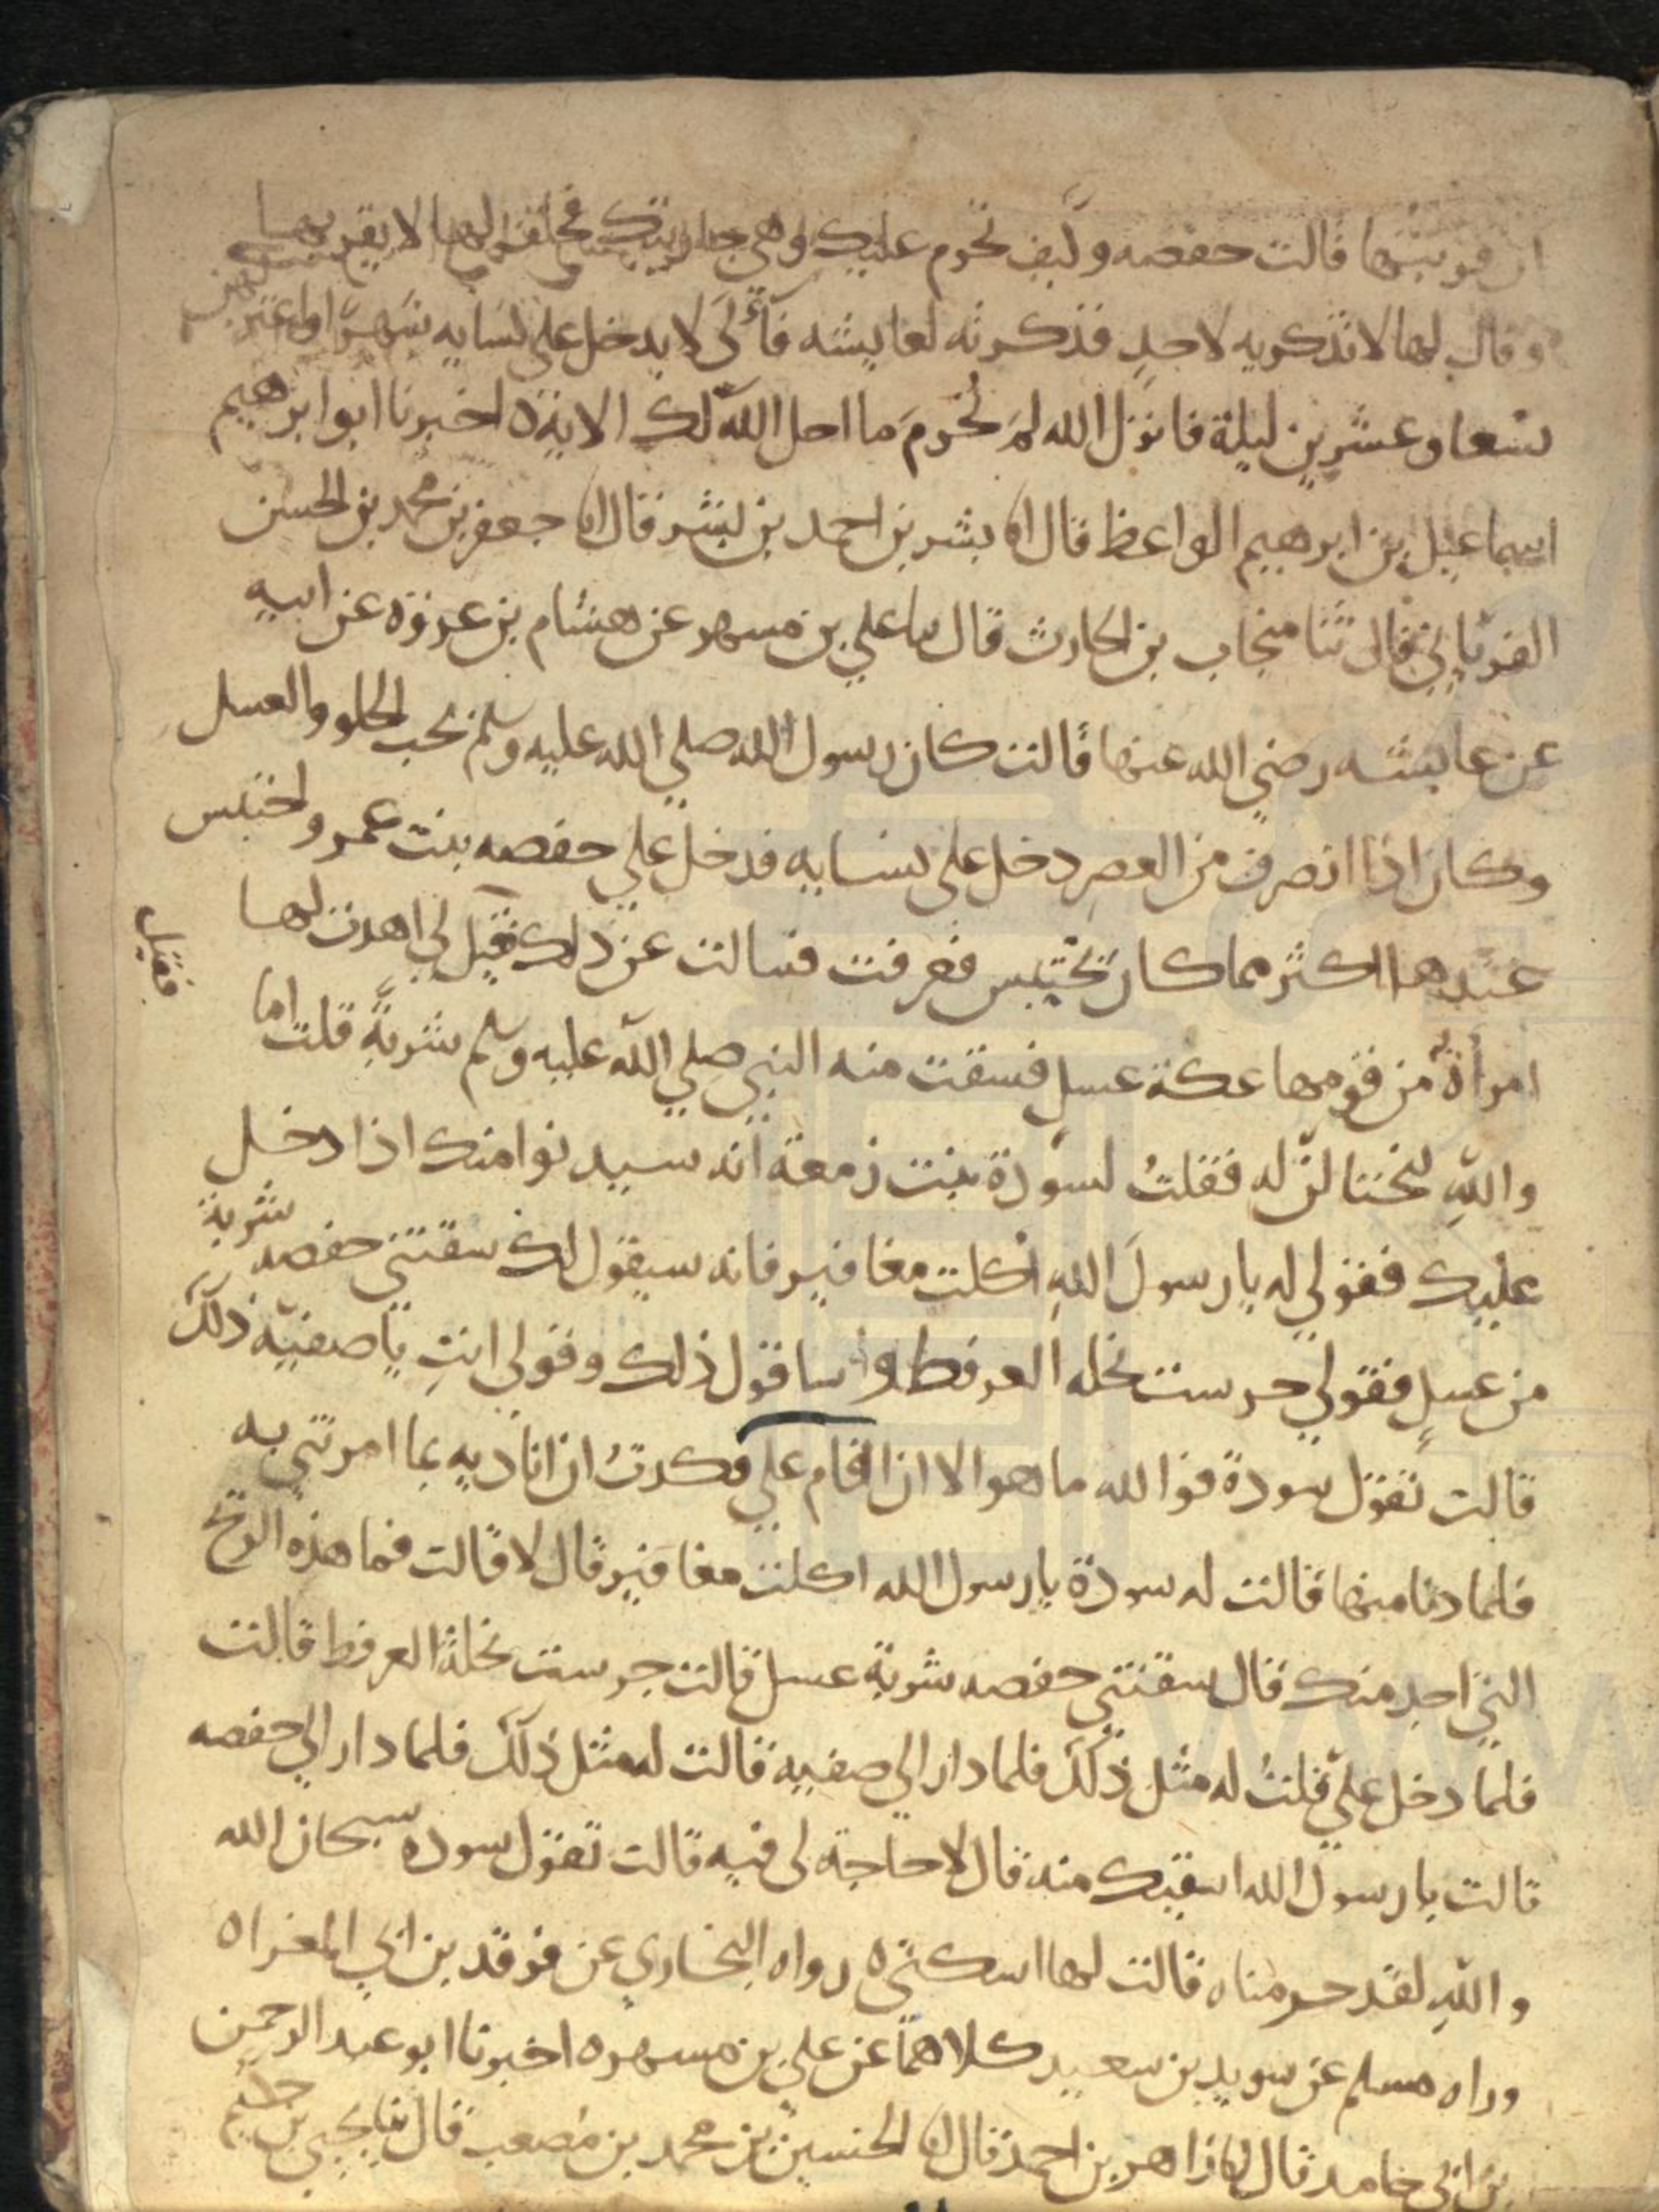 ان قربتها قالت حفصه وكيف تحرم عليك وهي جاريتك فحلف لها لا يقربها
وقال لها لا تذكريه لاحدٍ فذكرته لعايشه فآلى لا يدخل على نسايه شهرًا واعتزلهن
تسعا وعشرين ليلة فانزل الله لمَ تحرمَ ما احل الله لك الاية ه اخبرنا ابو ابرهيم
اسماعيل بن ابرهيم الواعظ قال انا بشر بن احمد بن بشر قال انا جعفر بن محمد بن الحسن
الفريابي قال ثنا منجاب بن الحارث قال ثنا علي بن مسهر عن هشام بن عروة عن ابيه
عن عايشه رضي الله عنها قالت كان رسول الله صلي الله عليه وسلم يحب الحلو والعسل
وكان اذا انصرف من العصرِ دخل على نسايه فدخل علي حفصه بنت عمر واحتبس
عندها اكثر مما كان يحتبس فعرفت فسالت عن ذلك فقيل لي اهدت لها
فقيل
امرأة من قومها عكة عسلٍ فسقت منه النبي صلي الله عليه وسلم شربةً قلت اما
واللهِ لنحتالن له فقلتُ لسودة بنت زمعة انه سيدنوا منك اذا دخل
عليك فقولي له يا رسولَ اللهِ اكلت مغافير فانه سيقول لك سقتني حفصه شربة
من عسلٍ فقولي جرست نحله العرفط وساقول ذلك وقولي انتِ يا صفيه ذلك
قالت تقول سودة فوالله ما هو الا ان اقام علي فكدتُ ان اناديه بما امرتني به
فلما دنا منها قالت له سودة يا رسول الله اكلت مغافير قال لا قالت فما هذه الريح
التي اجد منك قال سقتني حفصه شربة عسل قالت جرست نحلة العرفط قالت
فلما دخل عليّ قلتُ له مثل ذلك فلما دار الي صفيه قالت له مثل ذلك فلما دار الي حفصه
قالت يا رسول الله اسقيك منه قال لا حاجة لى فيه قالت تقول سوده سبحان الله
واللهِ لقد حرمناه قالت لها اسكتي ه رواه البخاري عن فرقد بن ابي المغراه
وراه مسلم عن سويد بن سعيد كلاهما عن علي بن مسهر ه اخبرنا ابو عبد الرحمن
بن ابى حامد قال انا زاهر بن احمد قال انا الحسين بن محمد بن مصعب قال ثنا يحيى بن حكيم